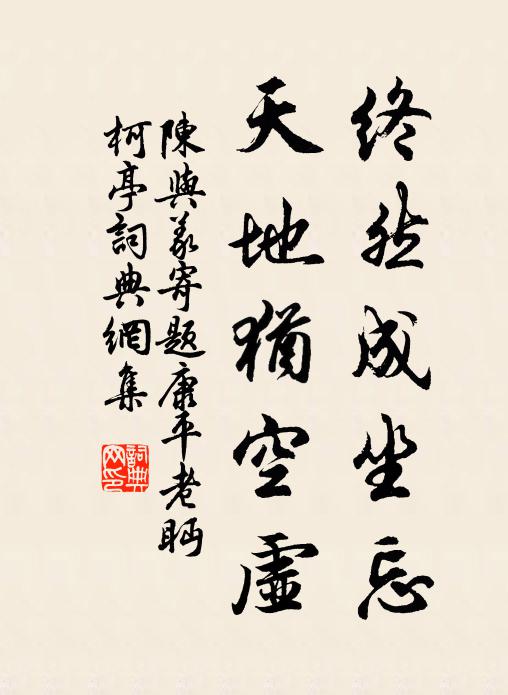 終然成坐忘
天地猶空虛
陳與義寄題康平老眄
柯亭詞典網集
詞典
网印